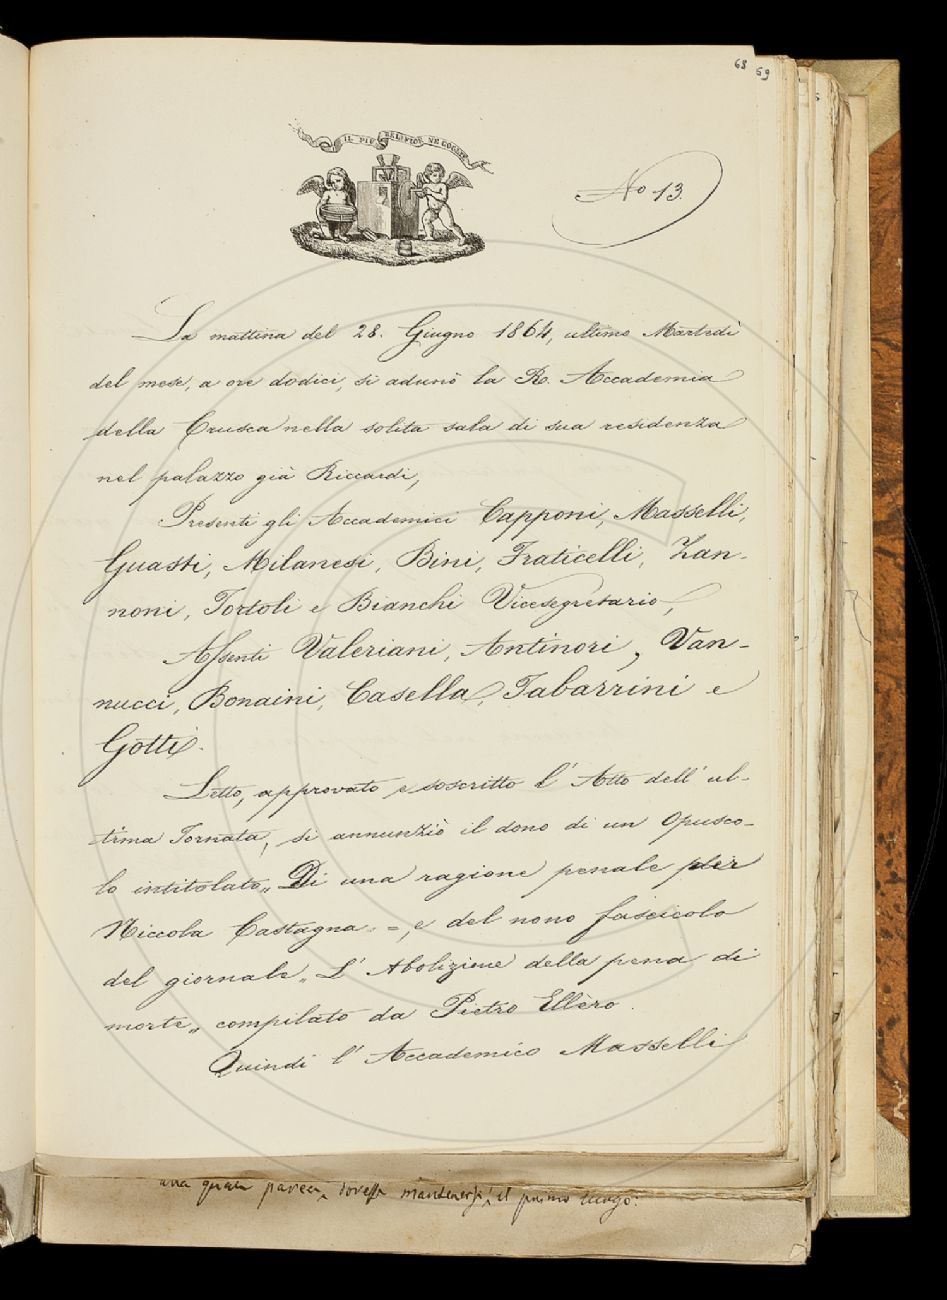 68 69
IL PIÙ BEL FIOR NE COGLIE
No 13.
La mattina del 28. Giugno 1864, ultimo Martedì
del mese, a ore dodici, si adunò la R. Accademia
della Crusca nella solita sala di sua residenza
nel palazzo già Riccardi,
Presenti gli Accademici Capponi, Masselli,
Guasti, Milanesi, Bini, Fraticelli, Zan-
noni, Tortoli e Bianchi Vicesegretario,
Assenti Valeriani, Antinori, Van-
nucci, Bonaini, Casella, Tabarrini e
Gotti.
Letto, approvato e soscritto l' Atto dell' ul-
tima Tornata, si annunziò il dono di un Opusco-
lo intitolato „ Di una ragione penale per
Niccola Castagna „ =, e del nono fascicolo
del giornale „ L' Abolizione della pena di
morte „ compilato da Pietro Ellèro.
Quindi l' Accademico Masselli
una parea, dovesse mantenersi il primo luogo: